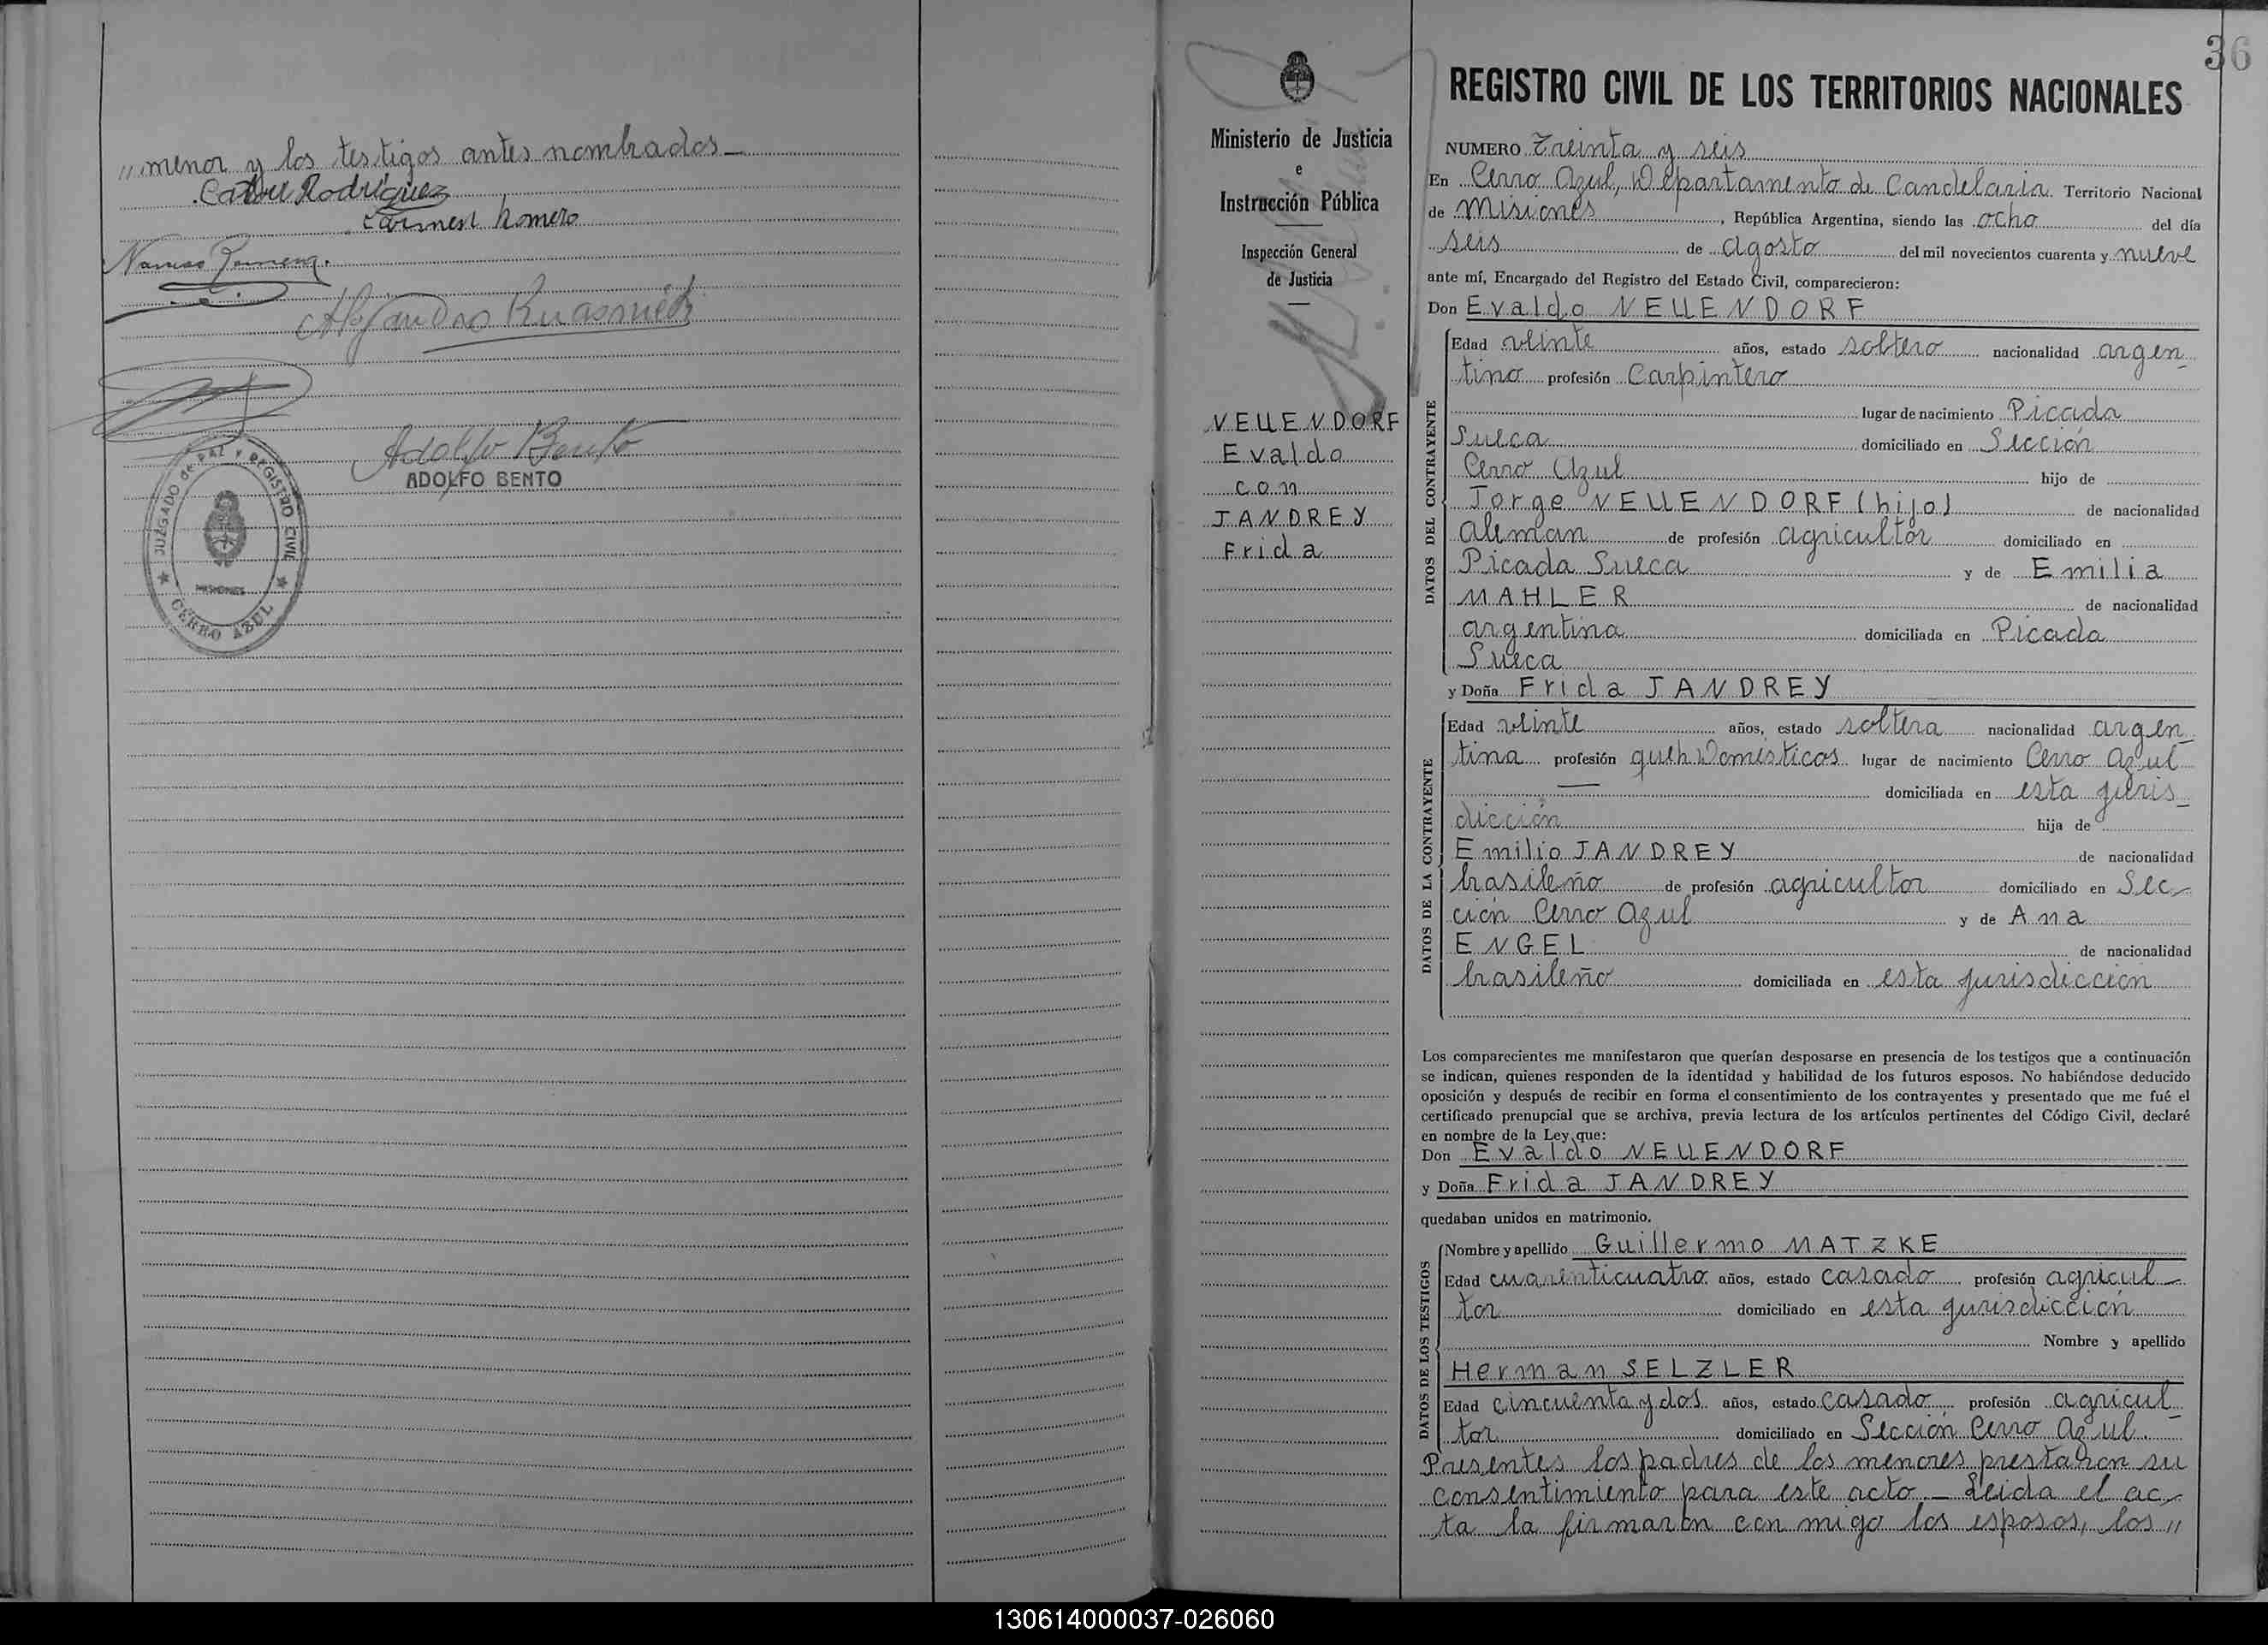 „menor y los testigos antes nombrados_
Rodríguez
Carmen Romero
Alejandro
Adolfo Bento
ADOLFO BENTO
JUZGADO de PAZ Y REGISTRO CIVIL
MISIONES
CERRO AZUL
36
Ministerio de Justicia
e
Instrucción Pública
Inspección General
de Justicia
NEUENDORF
Evaldo
con
JANDREY
Frida
REGISTRO CIVIL DE LOS TERRITORIOS NACIONALES
NUMERO Treinta y seis
En Cerro Azul, Departamento de Candelaria Territorio Nacional
de Misiones, República Argentina, siendo las ocho del día
seis de agosto del mil novecientos cuarenta y nueve
ante mí, Encargado del Registro del Estado Civil, comparecieron:
Don Evaldo NEUENDORF
DATOS DEL CONTRAYENTE
Edad veinte años, estado soltero nacionalidad argen-
tino profesión Carpintero
lugar de nacimiento Picada
Sueca domiciliado en Sección
Cerro Azul hijo de
Jorge NEUENDORF (hijo) de nacionalidad
alemán de profesión agricultor domiciliado en
Picada Sueca y de Emilia
MAHLER de nacionalidad
argentina domiciliada en Picada
Sueca
y Doña Frida JANDREY
DATOS DE LA CONTRAYENTE
Edad veinte años, estado soltera nacionalidad argen-
tina profesión queh. Domésticos lugar de nacimiento Cerro Azul
domiciliada en esta juris-
dicción hija de
Emilio JANDREY de nacionalidad
brasileño de profesión agricultor domiciliado en Sec-
ción Cerro Azul y de Ana
ENGEL de nacionalidad
brasileño domiciliada en esta jurisdicción
Los comparecientes me manifestaron que querían desposarse en presencia de los testigos que a continuación
se indican, quienes responden de la identidad y habilidad de los futuros esposos. No habiéndose deducido
oposición y después de recibir en forma el consentimiento de los contrayentes y presentado que me fué el
certificado prenupcial que se archiva, previa lectura de los artículos pertinentes del Código Civil, declaré
en nombre de la Ley que:
Don Evaldo NEUENDORF
y Doña Frida JANDREY
quedaban unidos en matrimonio.
DATOS DE LOS TESTIGOS
Nombre y apellido Guillermo MATZKE
Edad cuarenticuatro años, estado casado profesión agricul-
tor domiciliado en esta jurisdicción
Nombre y apellido
Herman SELZLER
Edad cincuenta y dos años, estado casado profesión agricul-
tor domiciliado en Sección Cerro Azul.
Presentes los padres de los menores prestaron su
consentimiento para este acto._ Leida el ac-
ta la firmaron con migo los esposos, los „
130614000037-026060